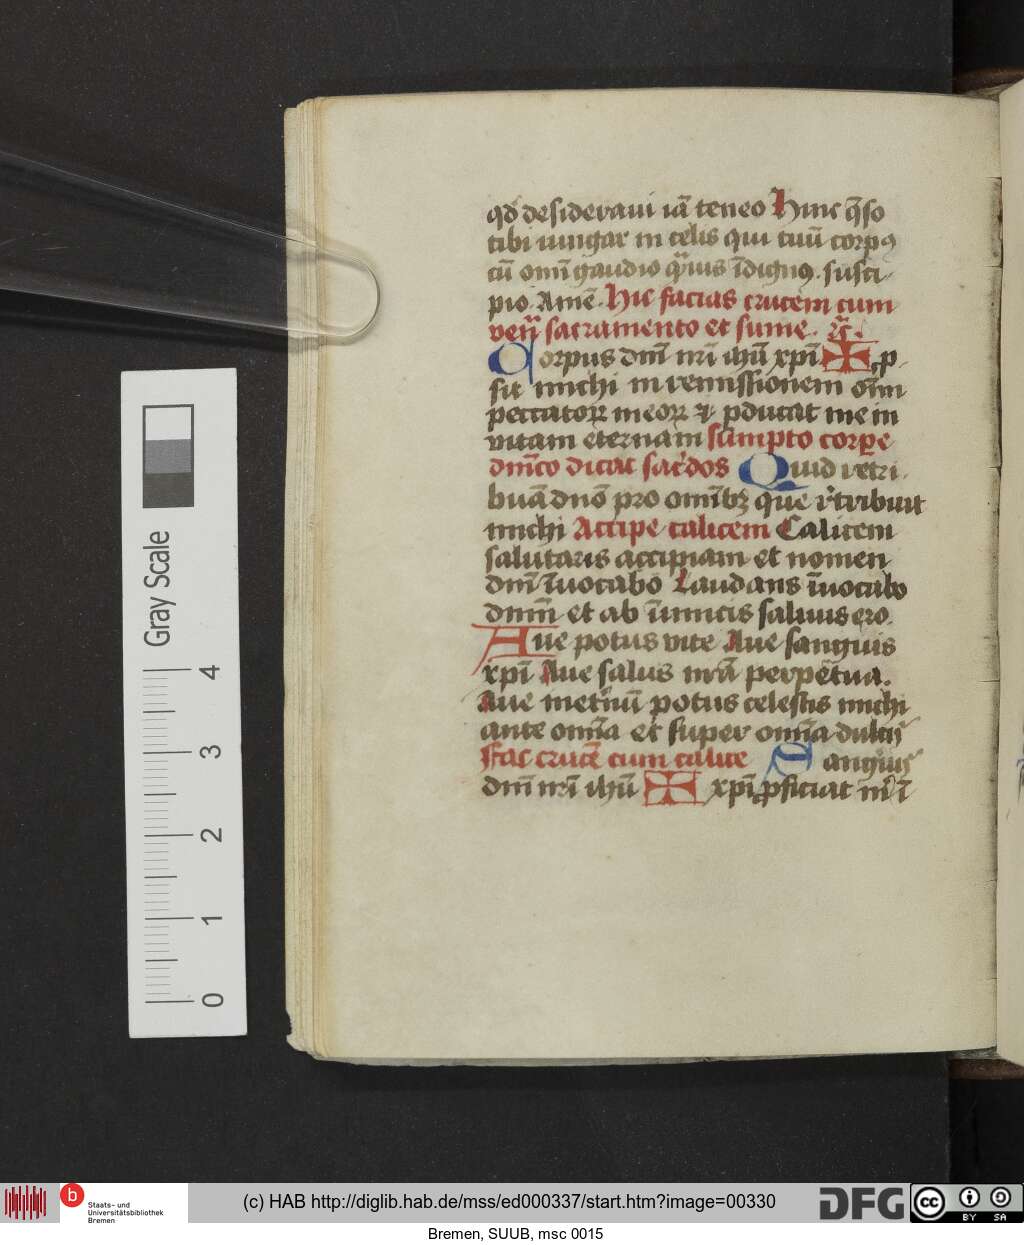 qd desideraui iā teneo Hinc q̄so
tibi iungar in celis qui tuū corpꝯ
cū omī gaudio q̄uis īdignꝯ susci
pio. Amē. Hic facias crucem cum
sacramento et sume. ⁊c̄.
Corpus dnī nrī ihū xpī ✠ ꝓ
sit michi in remissionem oīm
peccatoꝝ meoꝝ ⁊ ꝑducat me in
vitam eternam sumpto corpe
dnīco dicat sac̄dos Quid retri
buā dnō pro omībꝫ que r̄tribuit
michi Accipe calicem Calicem
salutaris accipiam et nomen
dnī īuocabo Laudans īuocabo
dnm̄ et ab īimicis saluus ero.
Aue potus vite Aue sanguis
xpī Aue salus nrā perpētua.
Aue met̄nū potus celestis michi
ante omīa et super omīa dulcis
Fac crucē cum calice Sanguis
dnī nrī ihū ✠ xpī ꝓficiat m̄ ī
Gray Scale
4
3
2
1
0
b
Staats- und
Universitätsbibliothek
Bremen
(c) HAB http://diglib.hab.de/mss/ed000337/start.htm?image=00330
DFG
cc
BY SA
Bremen, SUUB, msc 0015